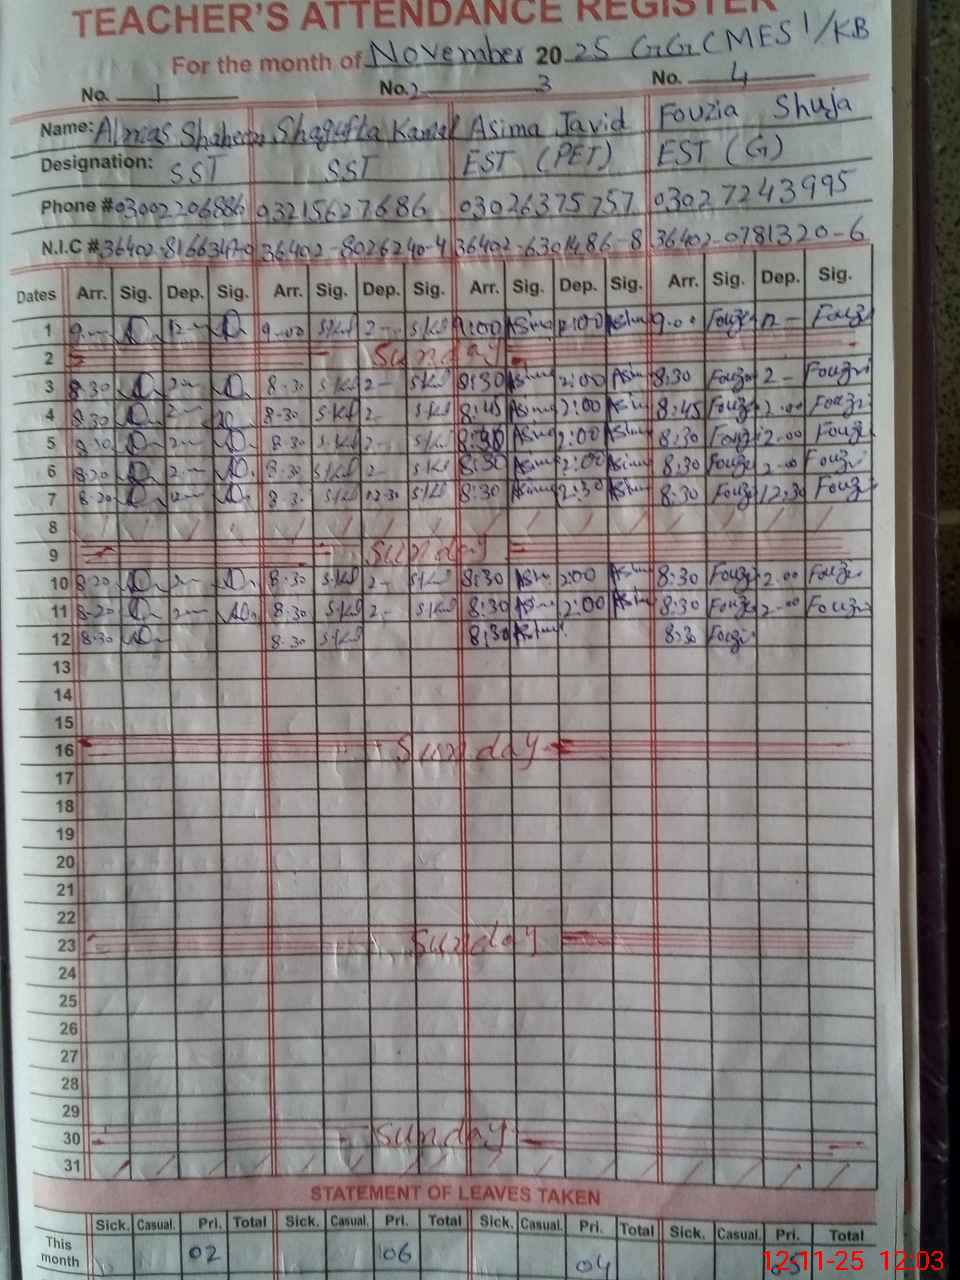 TEACHER'S ATTENDANCE REGISTER
For the month of November 2025 GGCMES 1/KB
No. 1 No. 2 3 No. 4
Name: Almas Shaheen Shagufta Kamal Asima Javid Fouzia Shuja
Designation: SST SST EST (PET) EST (G)
Phone # 03002206886 03215627686 03026375757 03027243995
N.I.C # 36402-8026240-4 36402-0781320-6
Dates Arr. Sig. Dep. Sig. Arr. Sig. Dep. Sig. Arr. Sig. Dep. Sig. Arr. Sig. Dep. Sig.
1 9-00 12- 9-00 2- 9:00 Asima 12:00 Asima 9.00 Fouzi 12- Fouzi
2 Sunday
3 8.30 2- 8-30 2- 8:30 Asima 2:00 Asima 8:30 Fouzi 2- Fouzi
4 8.30 2- 8-30 2- 8:45 Asima 2:00 Asima 8:45 Fouzi 2.00 Fouzi
5 8.30 2- 8.30 2- 8:30 Asima 2:00 Asima 8:30 Fouzi 2.00 Fouzi
6 8.20 2- 8.30 2- 8:30 Asima 2:00 Asima 8:30 Fouzi 2.00 Fouzi
7 8.20 12- 8.30 12-30 8:30 Asima 12:30 Asima 8:30 Fouzi 12:30 Fouzi
8
9 Sunday
10 8.20 2- 8-30 2- 8:30 Asima 2:00 Asima 8:30 Fouzi 2.00 Fouzi
11 8-20 2- 8.30 2- 8:30 Asima 2:00 Asima 8:30 Fouzi 2.00 Fouzi
12 8.30 8.30 8:30 Asima 8:30 Fouzi
13
14
15
16 Sunday
17
18
19
20
21
22
23 Sunday
24
25
26
27
28
29
30 Sunday
31
STATEMENT OF LEAVES TAKEN
Sick. Casual. Pri. Total Sick. Casual. Pri. Total Sick. Casual. Pri. Total Sick. Casual. Pri. Total
This month 02 106 04
12-11-25 12:03